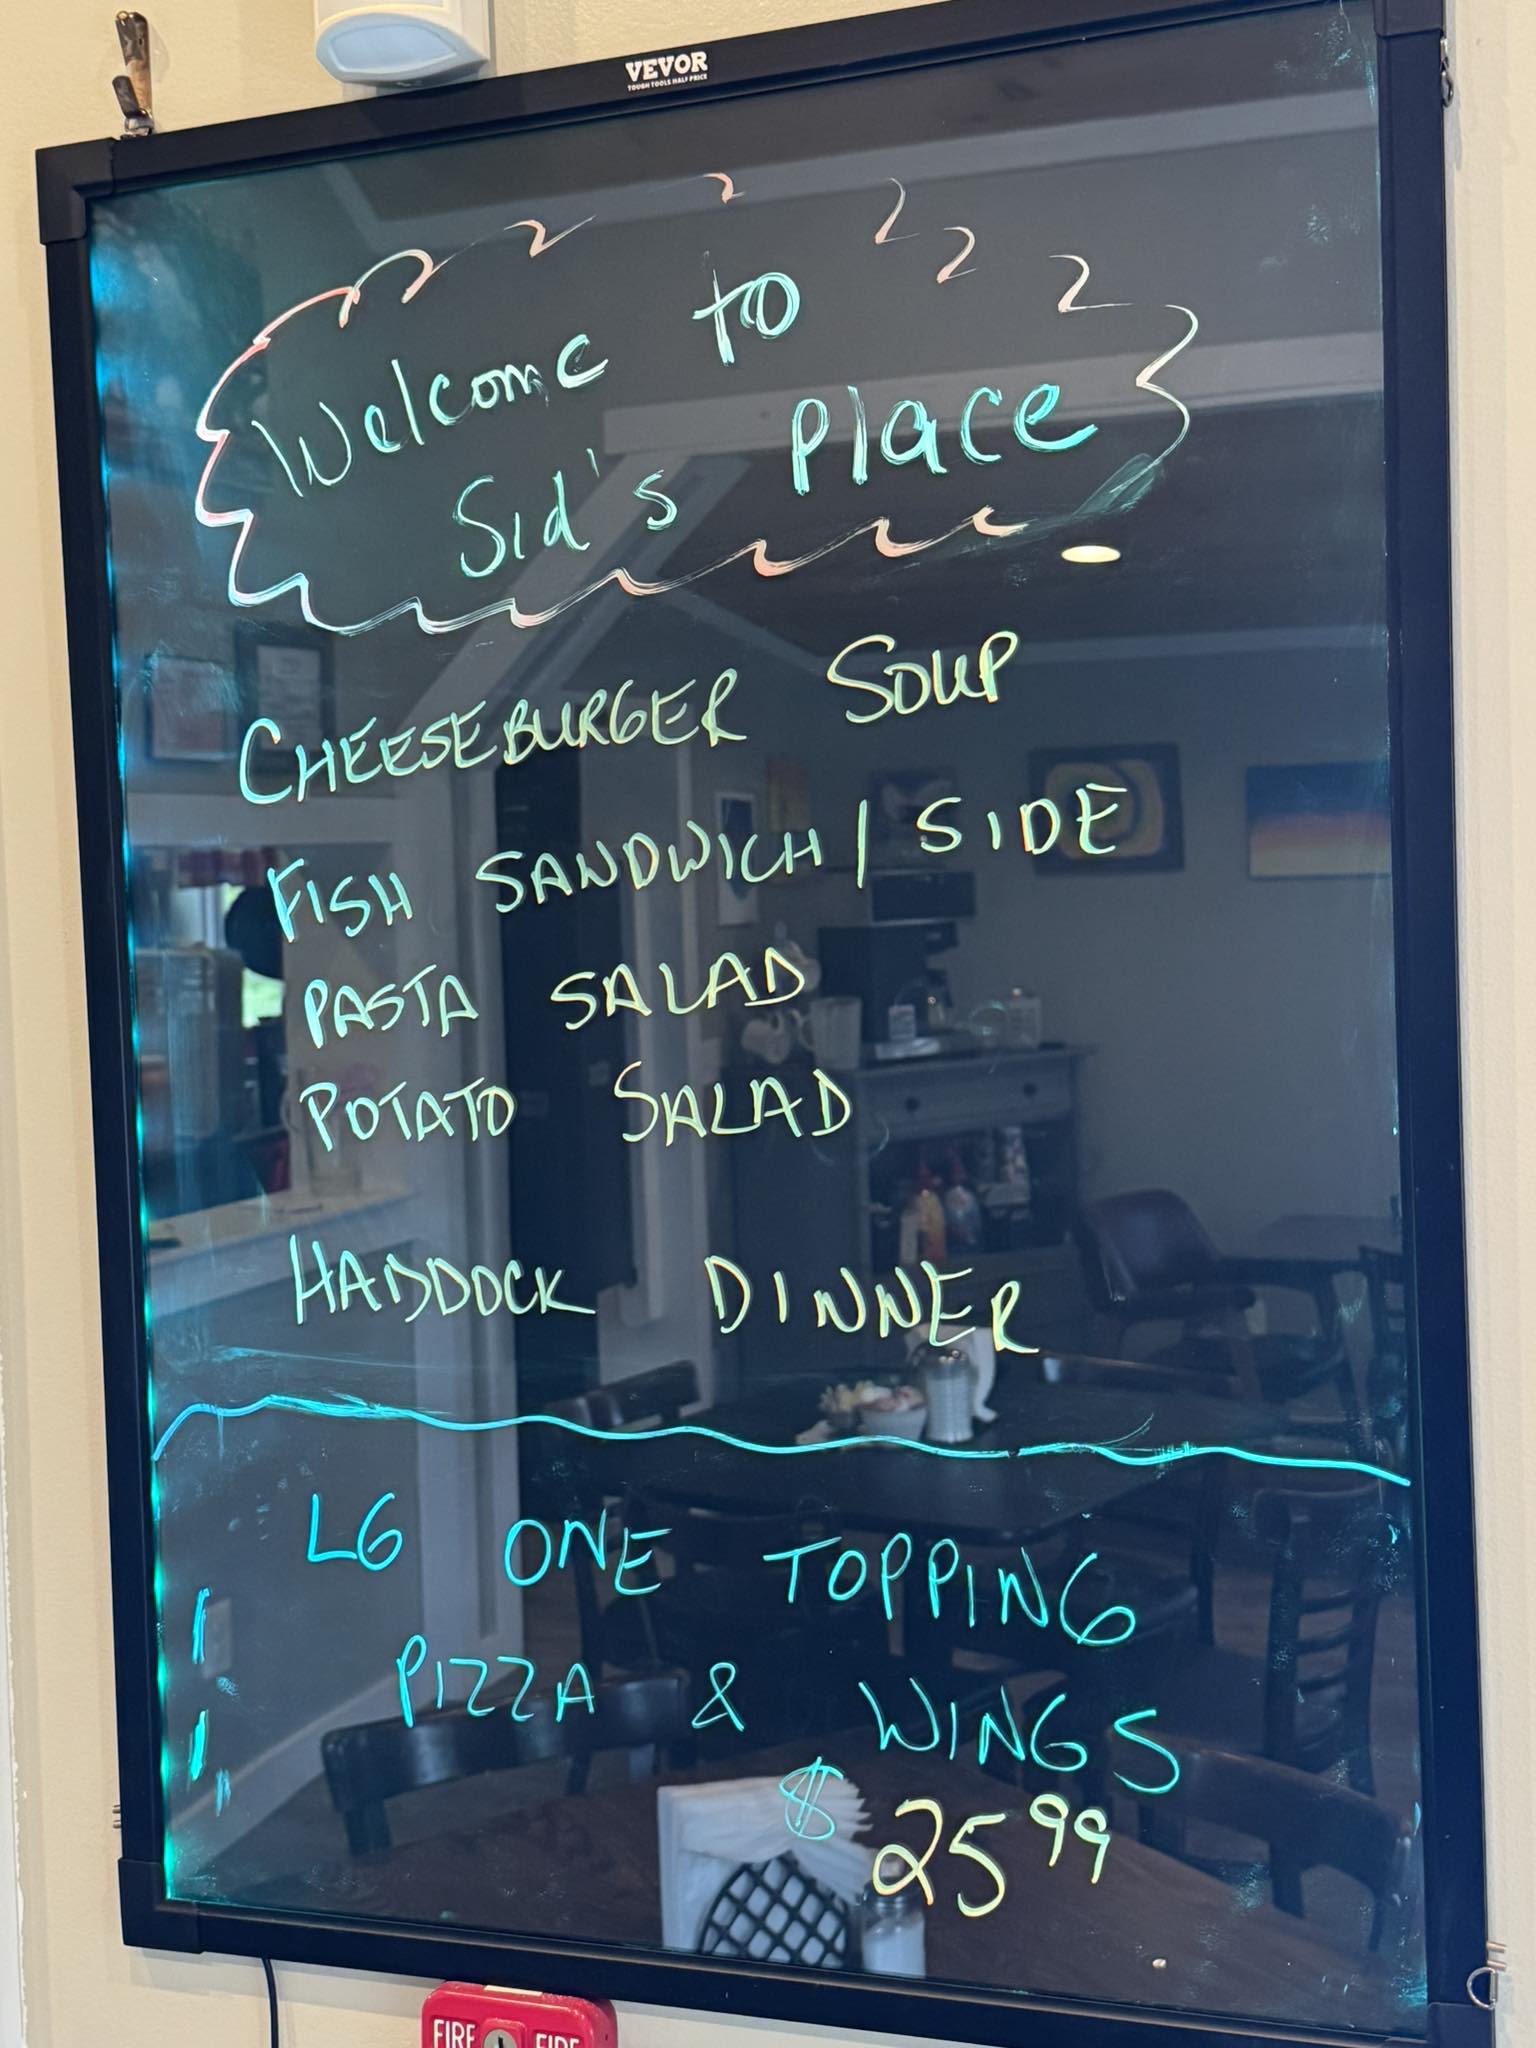 VEVOR
TOUGH TOOLS, HALF PRICE
Welcome to
Sid's Place
CHEESEBURGER SOUP
FISH SANDWICH / SIDE
PASTA SALAD
POTATO SALAD
HADDOCK DINNER
LG ONE TOPPING
PIZZA & WINGS
$ 25 99
FIRE FIRE